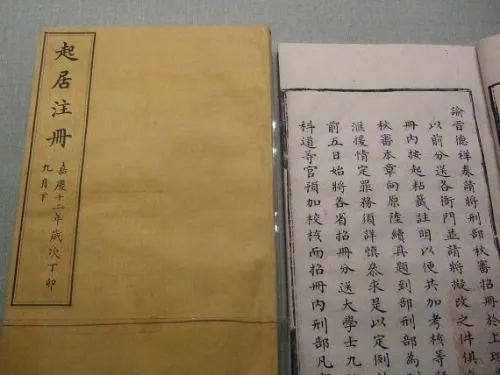 起居注冊
嘉慶十二年歲次丁卯
九月下
諭旨德祥奏請將刑部秋審招冊於上班
以前分送各衙門並請將擬改之件俱
冊內按起粘籤註明以便共加考核等
秋審本章向原陸續具題到部刑部為
滙覆情定罪務須詳慎叅求是以定例
前五日始將各省招冊分送大學士九
科道等官預加校核而招冊內刑部凡